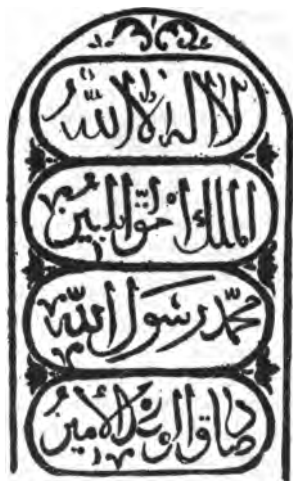 لا اله الا الله
الملك الحق المبين
محمد رسول الله
صادق الوعد الأمين